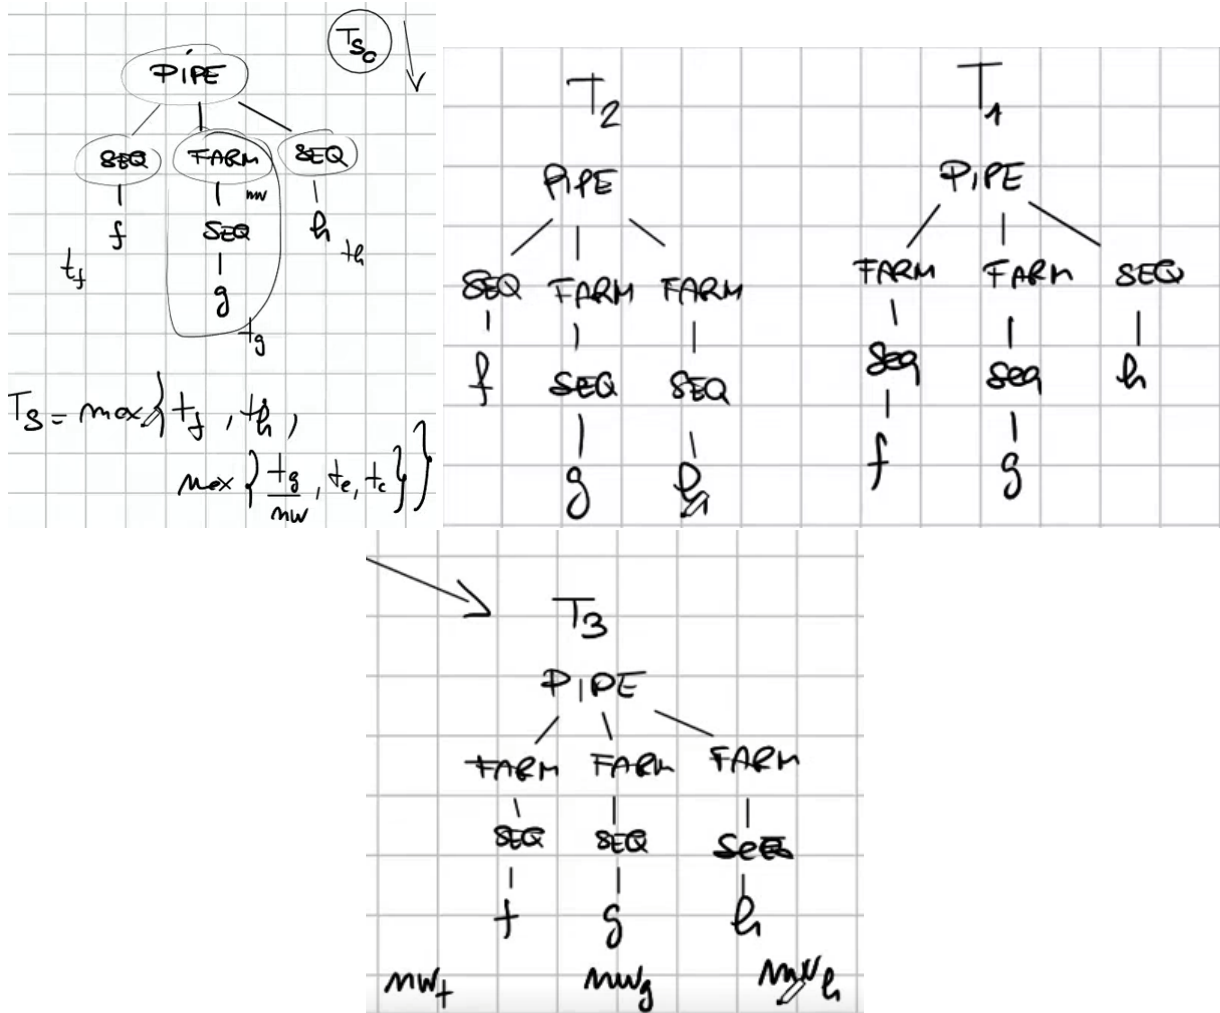 T_S0
PIPE
SEQ FARM SEQ
nw
f SEQ h
t_f t_h
g
t_g
T_S = max { t_f , t_h ,
max { t_g / nw , t_e , t_c } }
T_2
PIPE
SEQ FARM FARM
f SEQ SEQ
g h
T_1
PIPE
FARM FARM SEQ
SEQ SEQ h
f g
T_3
PIPE
FARM FARM FARM
SEQ SEQ SEQ
f g h
nw_f nw_g nw_h